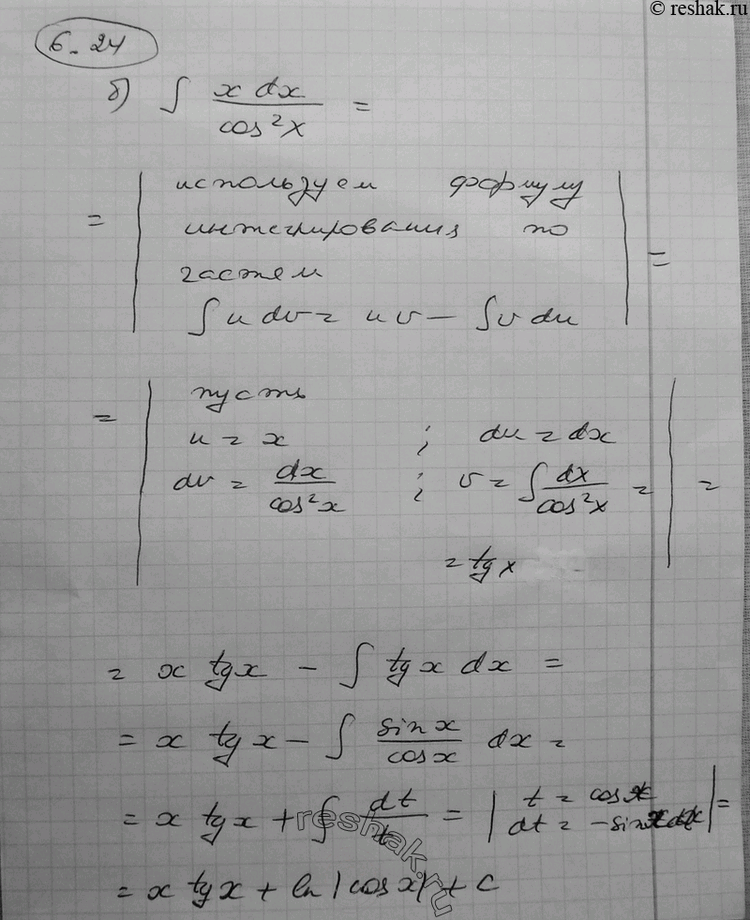 © reshak.ru
6.24
б) ∫ x dx / cos²x =
= | используем формулу
интегрирования по
частем
∫ u dv = uv − ∫ v du | =
= | пусть
u = x ; du = dx
dv = dx / cos²x ; v = ∫ dx / cos²x =
= tg x | =
= x tg x − ∫ tg x dx =
= x tg x − ∫ sin x / cos x dx =
= x tg x + ∫ dt / t = | t = cos x
dt = −sin x dx | =
= x tg x + ln |cos x| + C
reshak.ru